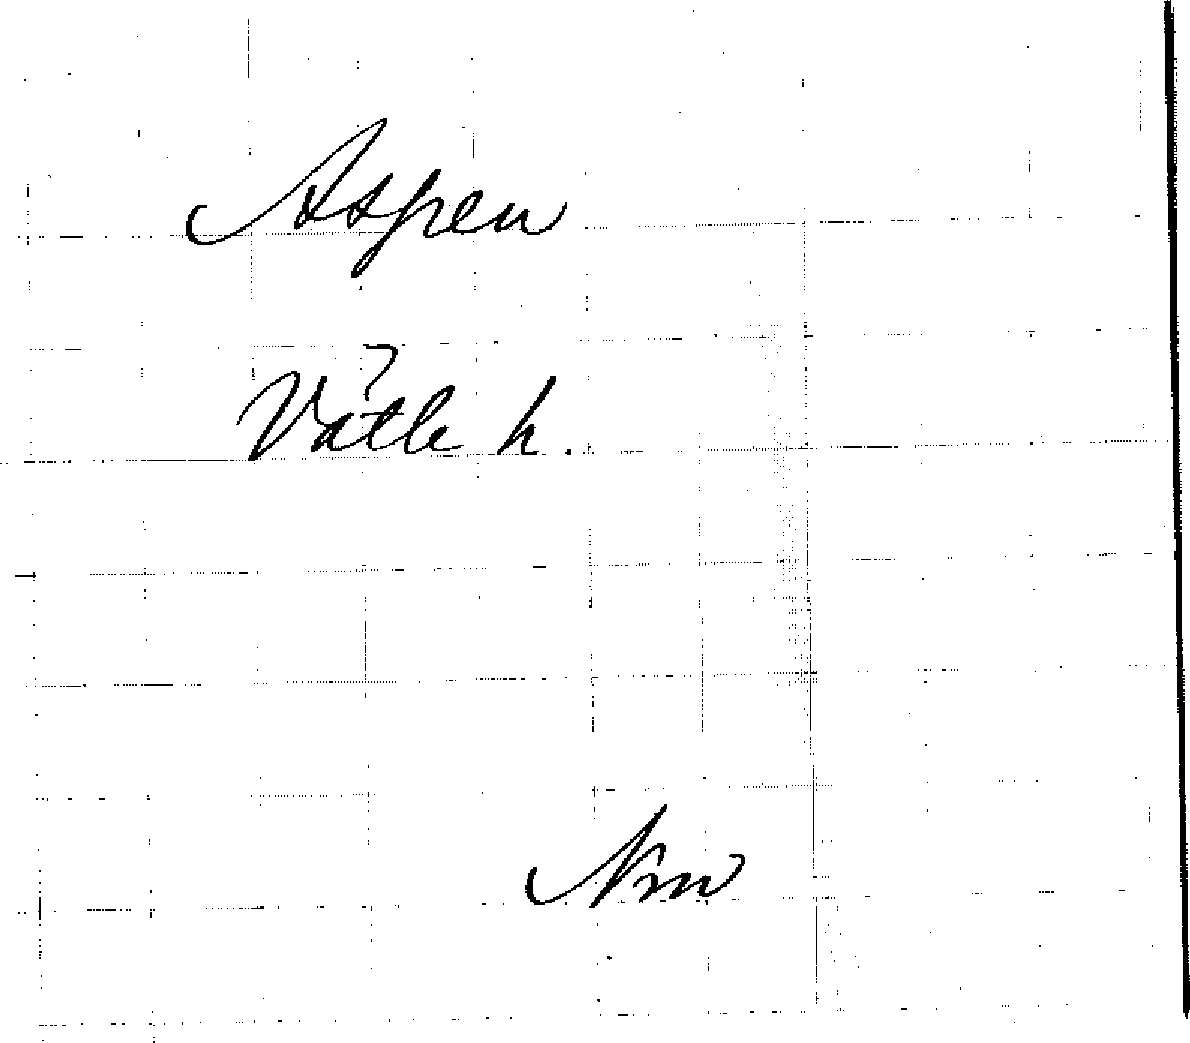 Aspen
Vätle h.